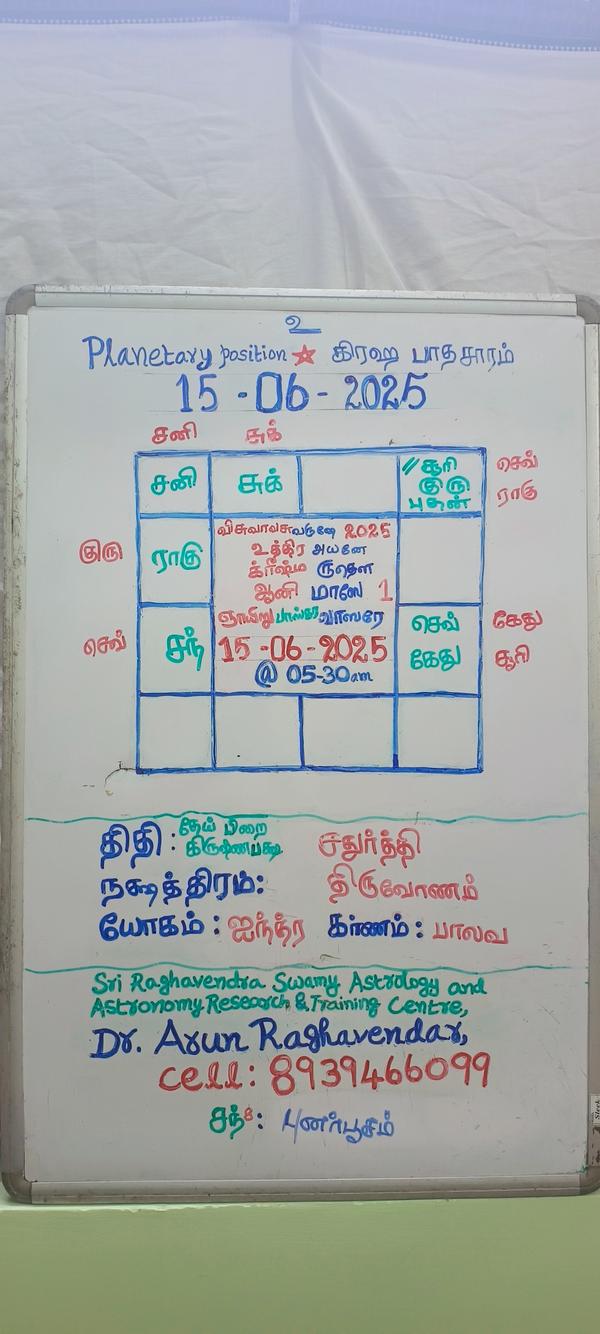 உ
Planetary position ☆ கிரஹ பாதசாரம்
15-06-2025
சனி சுக்
சனி சுக் // சூரி செவ்
குரு ராகு
புதன்
விசுவாவசுவருஷே 2025
உத்திர அயனே
குரு ராகு க்ரீஷ்ம ருதௌ
ஆனி மாஸே 1
ஞாயிறு பாஸ்கர வாஸரே செவ் கேது
செவ் சந் 15-06-2025 கேது சூரி
@ 05-30am
திதி : தேய் பிறை சதுர்த்தி
கிருஷ்ணபக்ஷ
நக்ஷத்திரம்: திருவோணம்
யோகம் : ஐந்த்ர கர்ணம் : பாலவ
Sri Raghavendra Swamy Astrology and
Astronomy Research & Training Centre,
Dr. Arun Raghavendar,
cell: 8939466099
சந்8: புனர்பூசம்